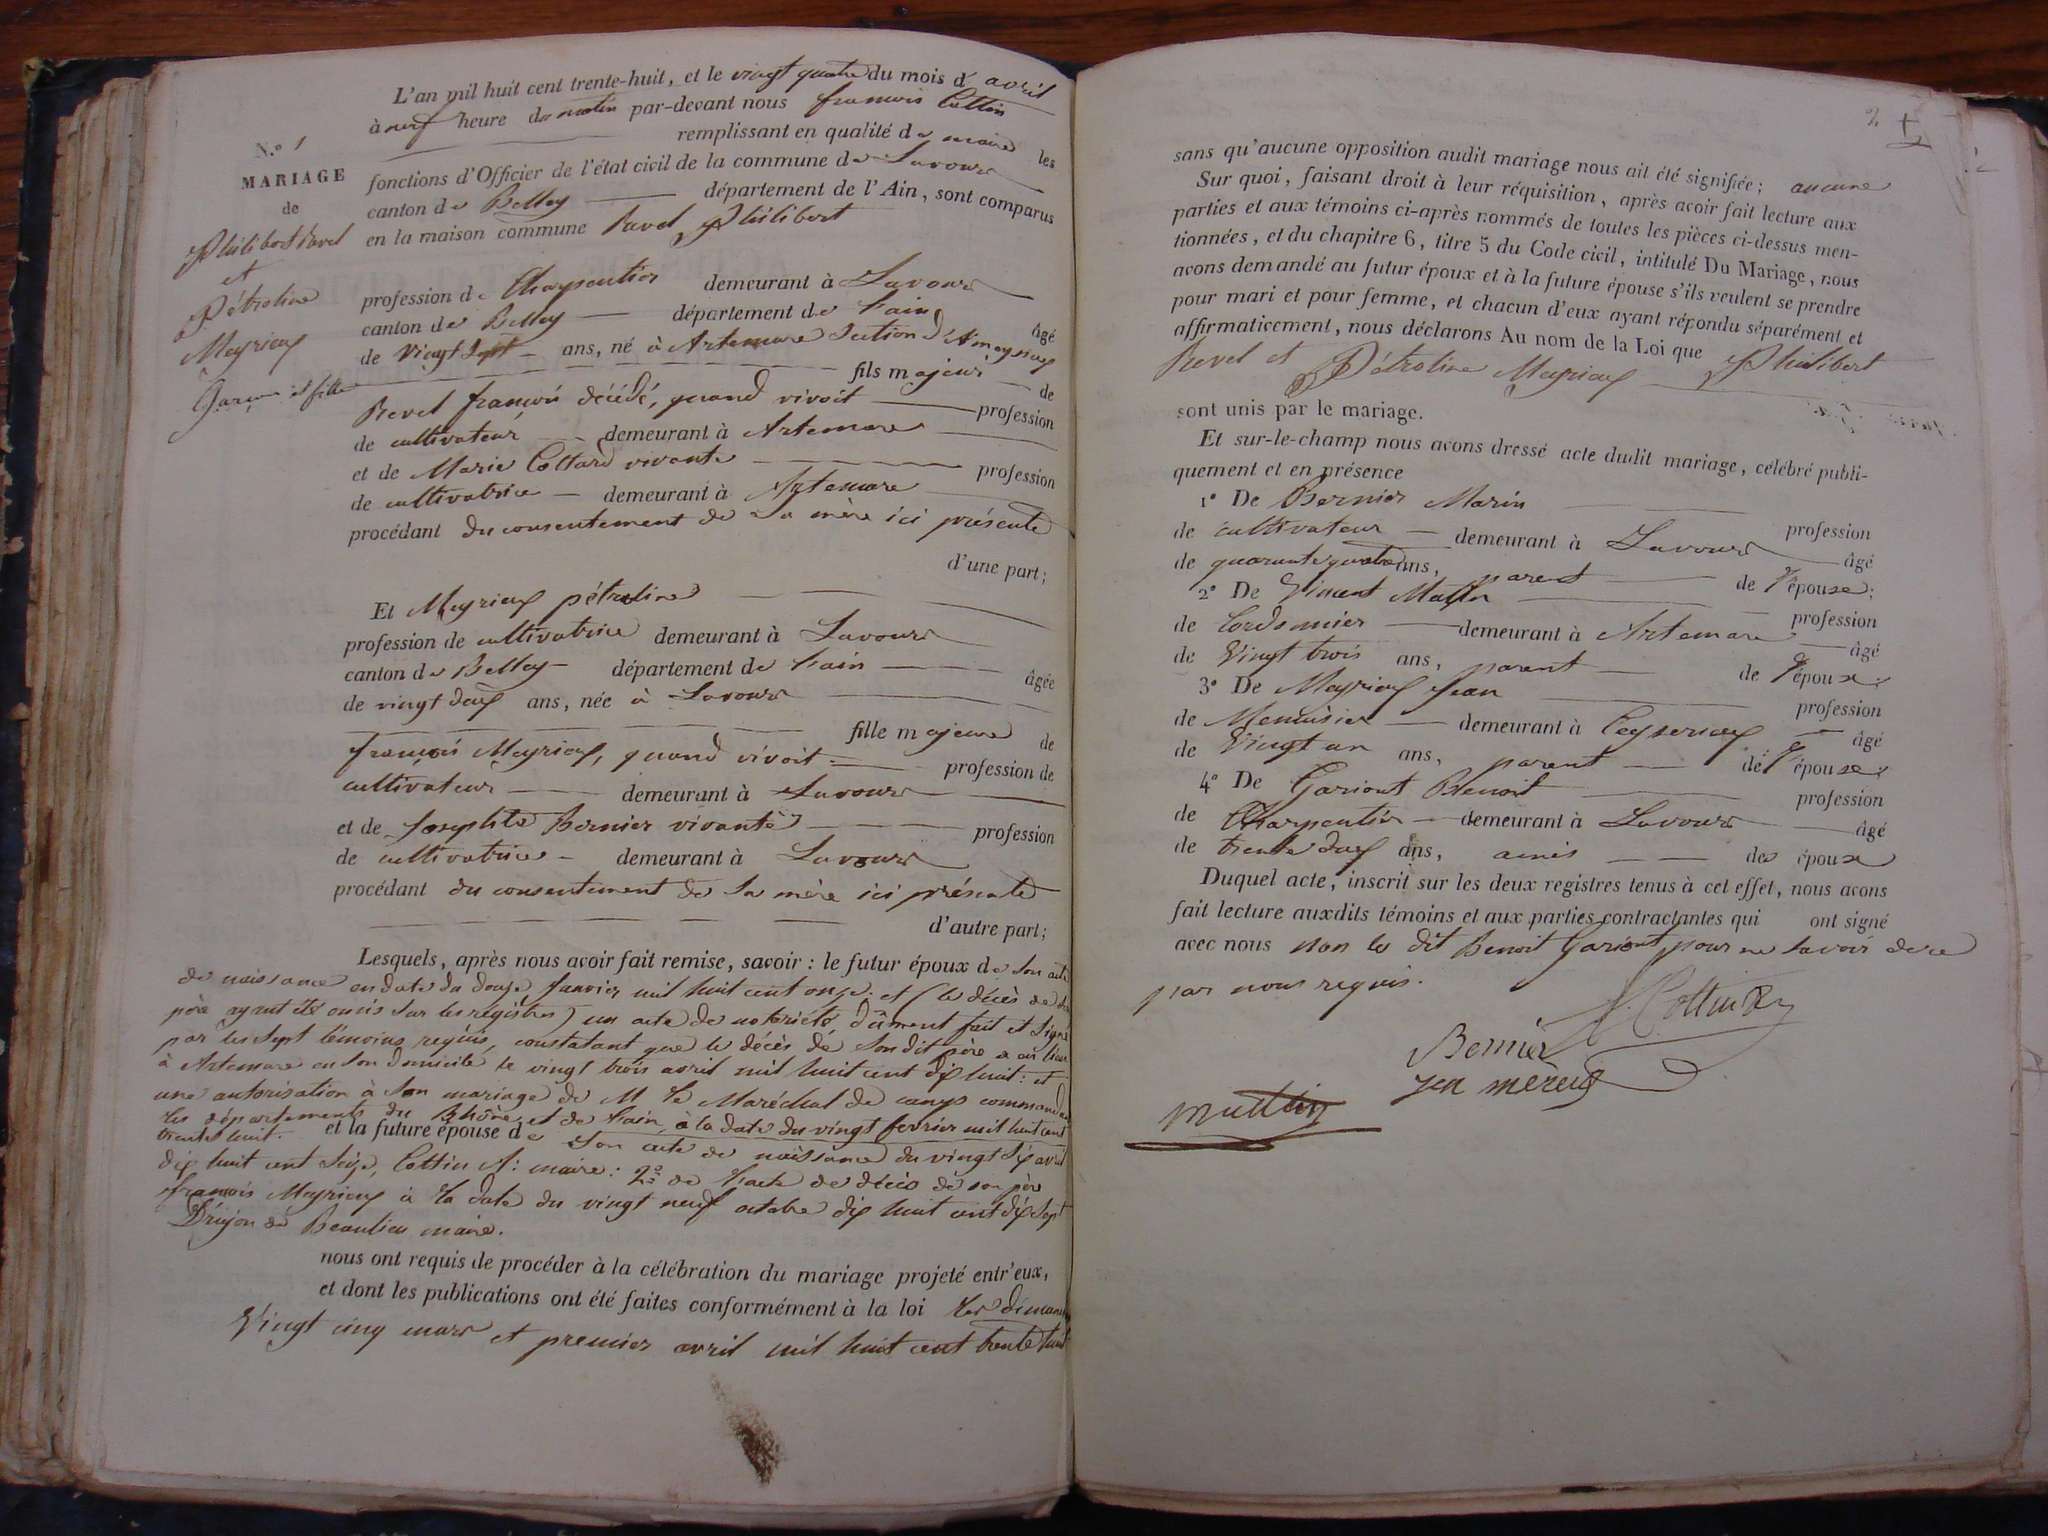 N.° 1
MARIAGE
de
Philibert Ravel
et
Pétroline
Meyrieux
Garçon et fille
L'an mil huit cent trente-huit, et le vingt quatre du mois d'avril
à neuf heure du matin par-devant nous francois Cottin
remplissant en qualité de maire les
fonctions d'Officier de l'état civil de la commune de Lavours
canton de Belley département de l'Ain, sont comparus
en la maison commune Ravel Philibert
profession de Charpentier demeurant à Lavours
canton de Belley département de l'ain âgé
de vingt Sept ans, né à Artemare Section d'Ameyzieu
fils majeur de
Revel françois décédé, quand vivoit profession
de cultivateur demeurant à Artemare
et de Marie Cottard vivante profession
de cultivatrice demeurant à Artemare
procédant du consentement de Sa mère ici présente
d'une part;
Et Meyrieux pétroline
profession de cultivatrice demeurant à Lavours
canton de Belley département de l'ain âgée
de vingt deux ans, née à Lavours
fille majeure de
françois Meyrieux, quand vivoit profession de
cultivateur demeurant à Lavours
et de Josephte Bernier vivante profession
de cultivatrice demeurant à Lavours
procédant du consentement de Sa mère ici présente
d'autre part;
Lesquels, après nous avoir fait remise, savoir : le futur époux de Son acte
de naissance en date du douze Janvier mil huit cent onze; et (le décès de Son
père ayant été omis sur les registres) un acte de notoriété, dûment fait et Signé
par les Sept témoins requis, constatant que le décès de Son dit père a eu lieu
à Artemare en Son domicile le vingt trois avril mil huit cent dix huit: et
une autorisation à Son mariage de M. le Maréchal de camp commandant
les départements du Rhône et de l'ain, à la date du vingt fevrier mil huit cent
trente huit. et la future épouse de Son acte de naissance du vingt Six avril
dix huit cent Seize, Cottin A: maire: 2° de l'acte de décès de son père
françois Meyrieux à la date du vingt neuf octobre dix huit cent dix Sept
Drujon de Beaulieu maire.
nous ont requis de procéder à la célébration du mariage projeté entr'eux,
et dont les publications ont été faites conformément à la loi les dimanches
Vingt cinq mars et premier avril mil huit cent trente huit
2
sans qu'aucune opposition audit mariage nous ait été signifiée; aucune
Sur quoi, faisant droit à leur réquisition, après avoir fait lecture aux
parties et aux témoins ci-après nommés de toutes les pièces ci-dessus men-
tionnées, et du chapitre 6, titre 5 du Code civil, intitulé Du Mariage, nous
avons demandé au futur époux et à la future épouse s'ils veulent se prendre
pour mari et pour femme, et chacun d'eux ayant répondu séparément et
affirmativement, nous déclarons Au nom de la Loi que Philibert
Revel et Pétroline Meyrieux
sont unis par le mariage.
Et sur-le-champ nous avons dressé acte dudit mariage, célébré publi-
quement et en présence
1° De Bernier Marin profession
de cultivateur demeurant à Lavours âgé
de quarante quatre ans, parent de l'épouse;
2° De Vincent Mattin profession
de Cordonnier demeurant à Artemare âgé
de Vingt trois ans, parent de l'épouse;
3° De Meyrieux Jean profession
de Menuisier demeurant à Ceyserieux âgé
de Vingt un ans, parent de l'épouse;
4° De Gariout Benoit profession
de Charpentier demeurant à Lavours âgé
de trente deux ans, amis des époux
Duquel acte, inscrit sur les deux registres tenus à cet effet, nous avons
fait lecture auxdits témoins et aux parties contractantes qui ont signé
avec nous non le dit Benoit Gariout, pour ne Savoir de ce
par nous requis.
Cottin
Bernier
Jen mèreux
Mattin